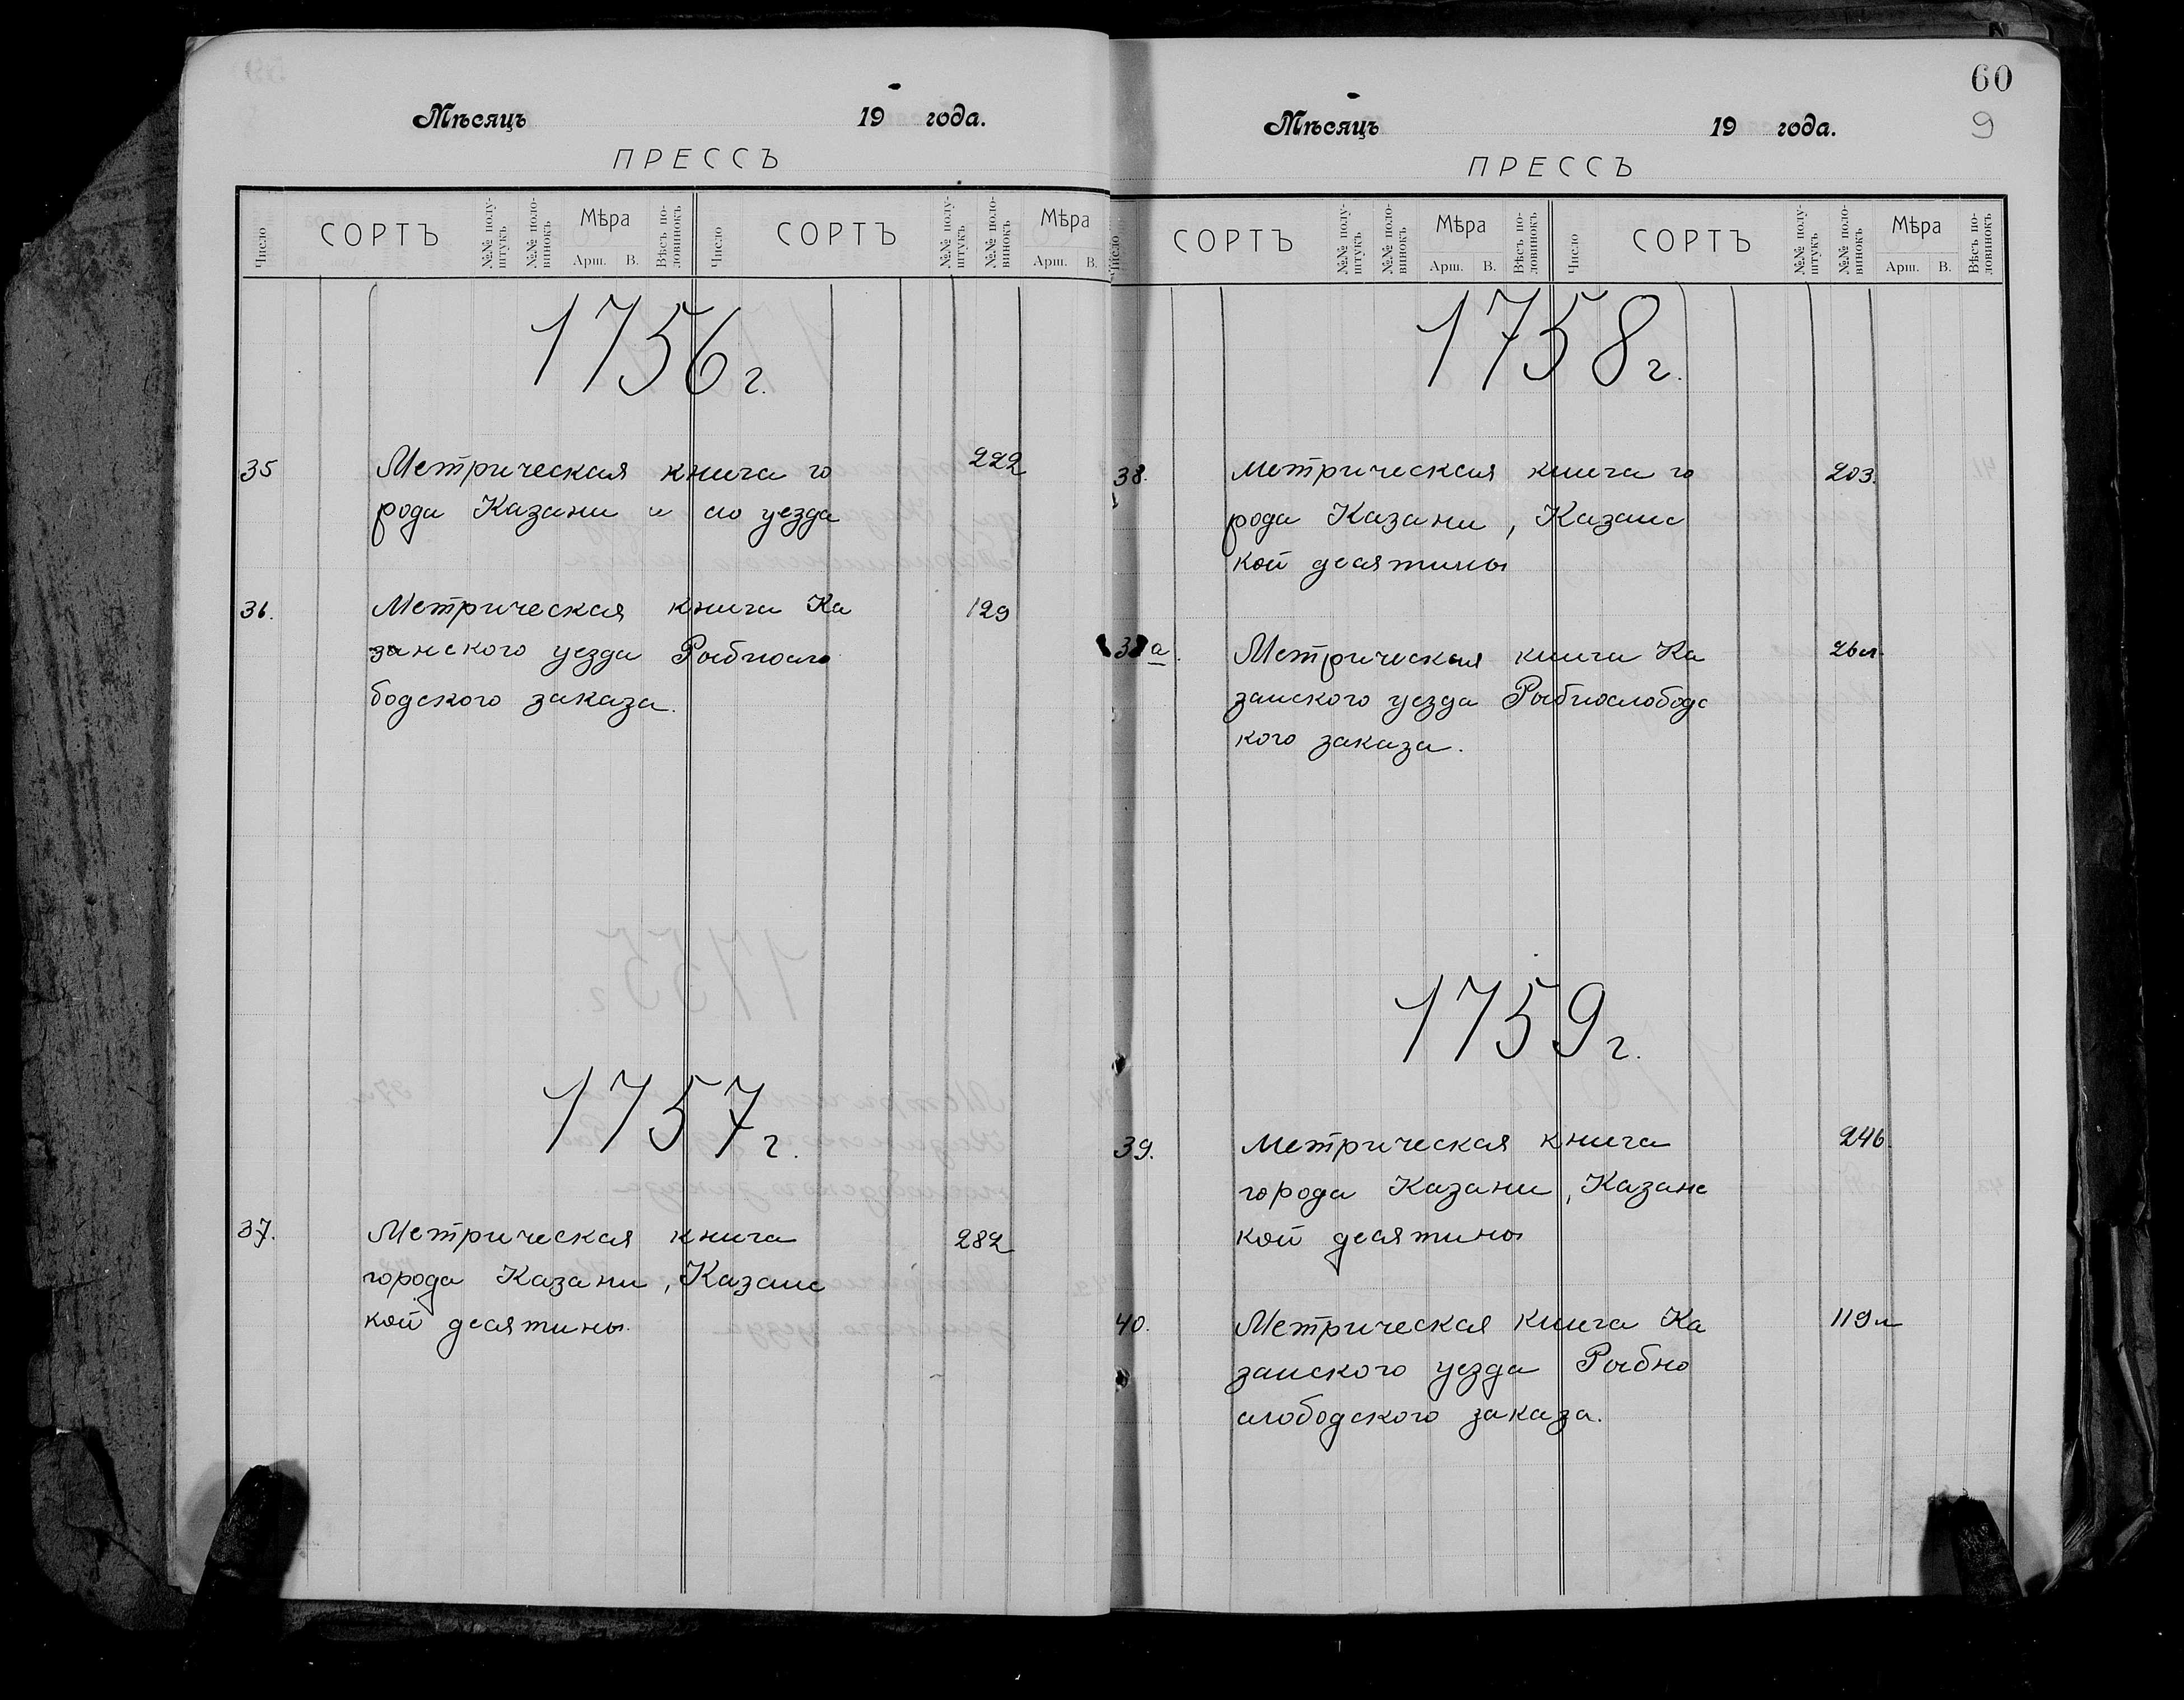 Мѣсяцъ 19 года.
ПРЕССЪ
Число СОРТЪ №№ полу-штукъ №№ поло-винокъ Мѣра Арш. В. Вѣсъ по-ловинокъ Число СОРТЪ №№ полу-штукъ №№ поло-винокъ Мѣра Арш. В.
1756 г.
35 Метрическая книга го 222
рода Казани и его уезда
36. Метрическая книга Ка 129
занского уезда Рыбносло
бодского заказа.
1757 г.
37. Метрическая книга 282
города Казани, Казанс
кой десятины.
60
9
Мѣсяцъ 19 года.
ПРЕССЪ
Число СОРТЪ №№ полу-штукъ №№ поло-винокъ Мѣра Арш. В. Вѣсъ по-ловинокъ Число СОРТЪ №№ полу-штукъ №№ поло-винокъ Мѣра Арш. В. Вѣсъ по-ловинокъ
1758 г.
38. Метрическая книга го 203.
рода Казани, Казанс
кой десятины
38а. Метрическая книга Ка 26л.
занского уезда Рыбнослободс
кого заказа.
1759 г.
39. Метрическая книга 246.
города Казани, Казанс
кой десятины
40. Метрическая книга Ка 119л
занского уезда Рыбно
слободского заказа.